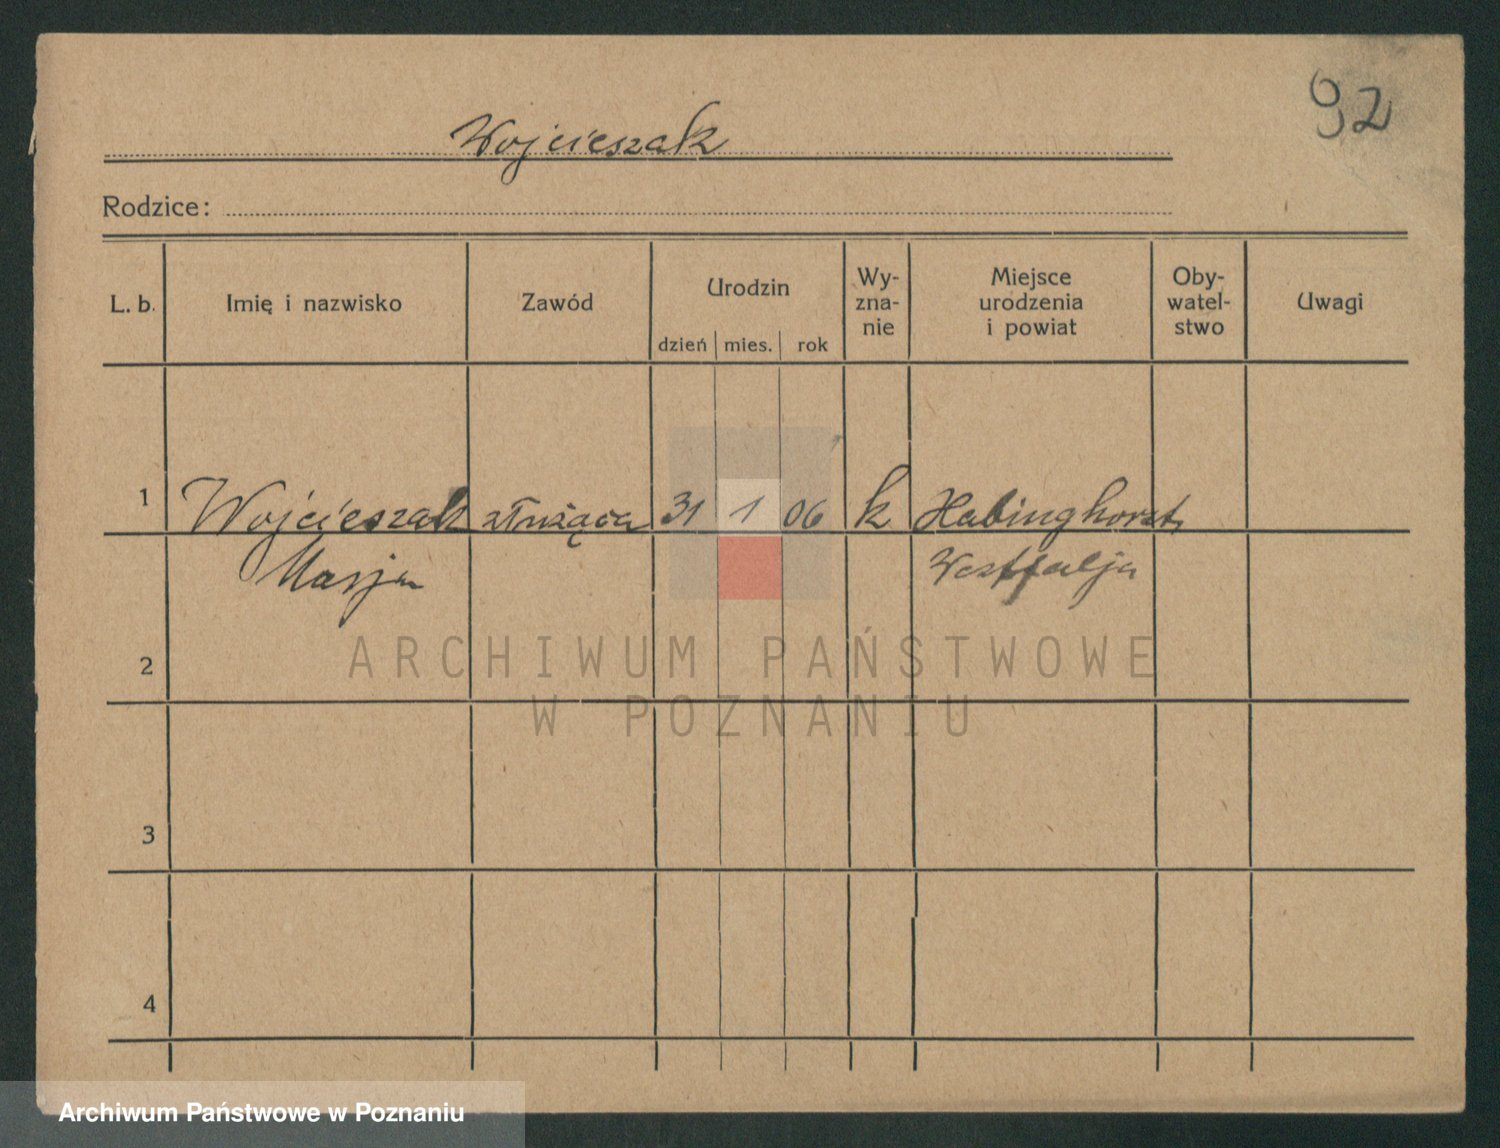 92
Wojcieszak
Rodzice:
L. b. Imię i nazwisko Zawód Urodzin Wy-
zna-
nie Miejsce
urodzenia
i powiat Oby-
watel-
stwo Uwagi
dzień mies. rok
1 Wojcieszak służąca 31 1 06 k Habinghorst,
Marja Westfalja
2
3
4
ARCHIWUM PAŃSTWOWE
W POZNANIU
Archiwum Państwowe w Poznaniu